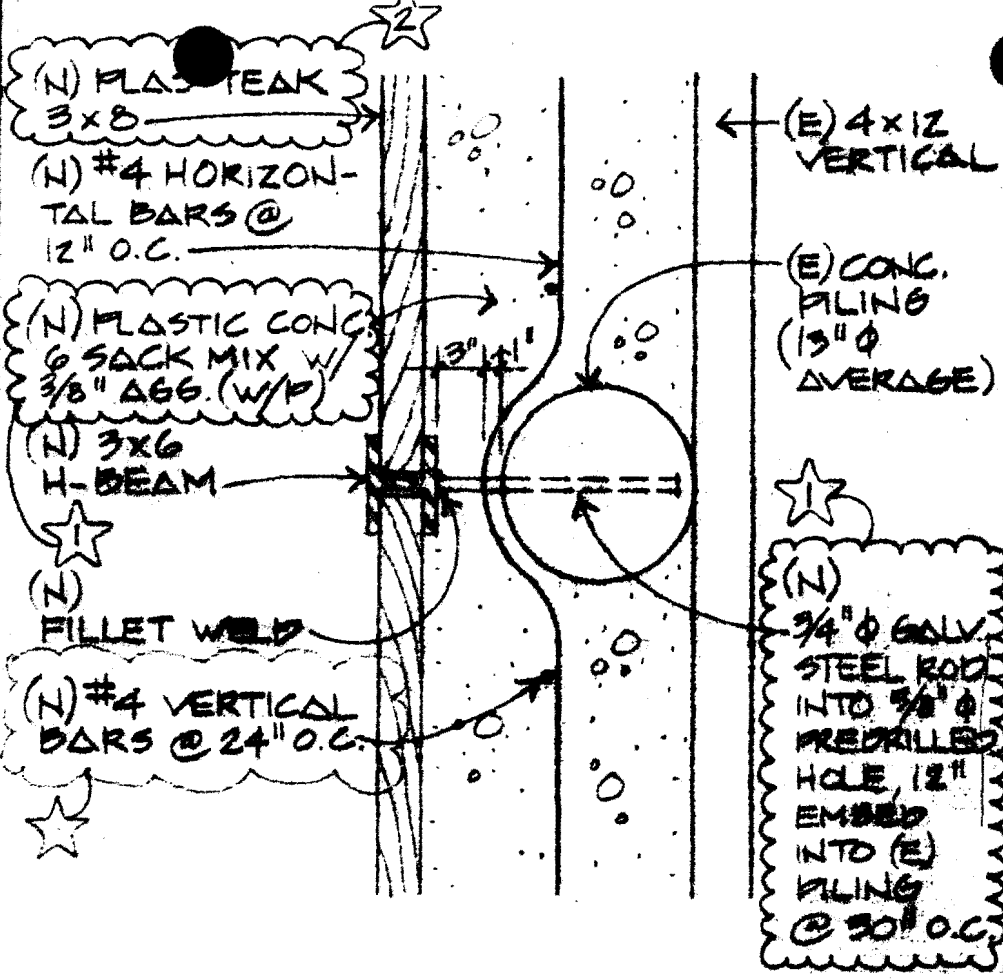 2
(N) PLAS TEAK
3x8
(N) #4 HORIZON-
TAL BARS @
12" O.C.
(N) PLASTIC CONC.
6 SACK MIX W/
3/8" AGG. (W/P)
(N) 3x6
H-BEAM
1
(N)
FILLET WELD
(N) #4 VERTICAL
BARS @ 24" O.C.
3" 1"
(E) 4x12
VERTICAL
(E) CONC.
PILING
(13" φ
AVERAGE)
1
(N)
3/4" φ GALV.
STEEL ROD
INTO φ
PREDRILLED
HOLE, 12"
EMBED
INTO (E)
PILING
@ 30" O.C.